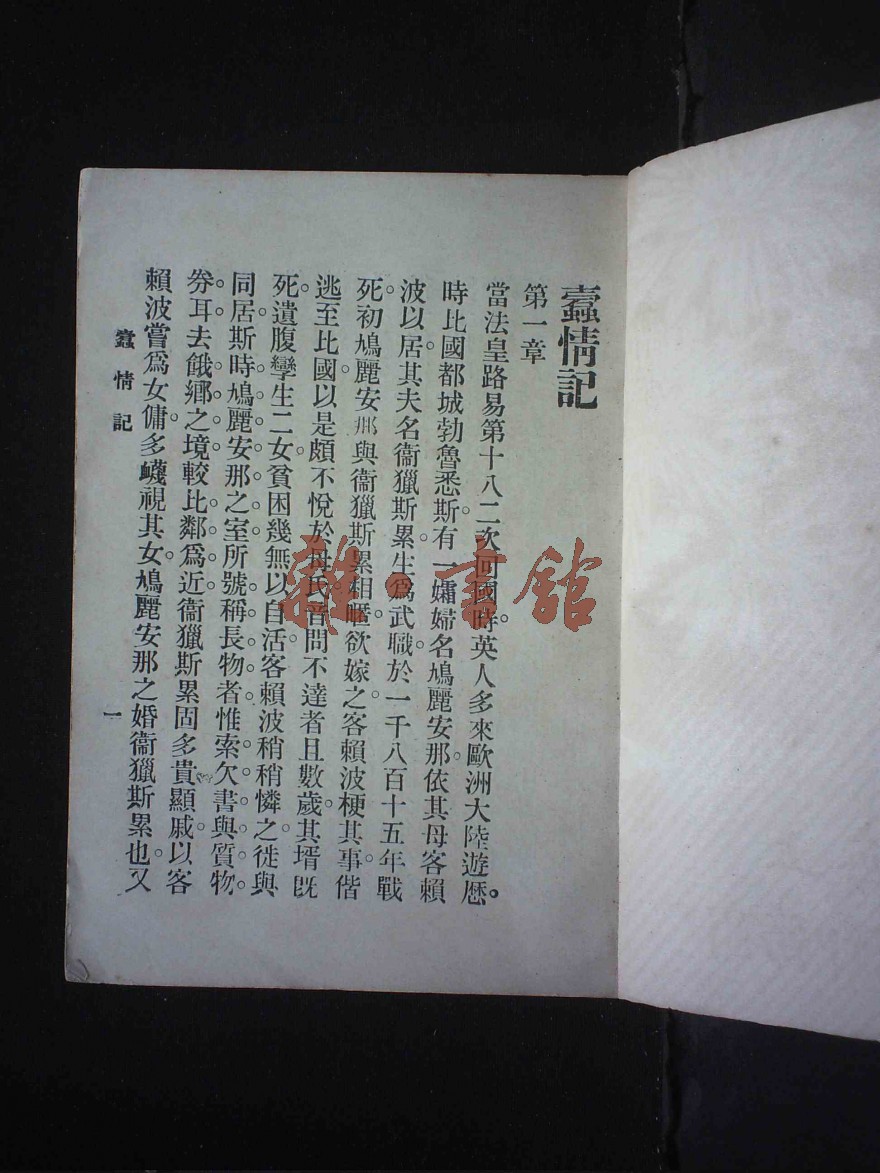 蠹情記
第一章
當法皇路易第十八二次回國時英人多來歐洲大陸遊歷。
時比國都城勃魯悉斯有一孀婦名鳩麗安那依其母客賴
波以居其夫名衞獵斯累生爲武職於一千八百十五年戰
死初鳩麗安那與衞獵斯累相暱欲嫁之客賴波梗其事偕
逃至比國以是頗不悅於母氏音問不達者且數歲其壻旣
死遺腹孿生二女貧困幾無以自活客賴波稍稍憐之徙與
同居斯時鳩麗安那之室所號稱長物者惟索欠書與質物
劵耳去餓鄉之境較比鄰爲近衞獵斯累固多貴顯戚以客
賴波嘗爲女傭多衊視其女鳩麗安那之婚衞獵斯累也又
蠹情記
一
雜·書館